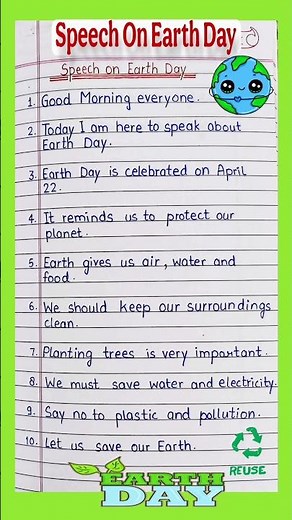 Speech On Earth Day
Speech on Earth Day
1. Good Morning everyone.
2. Today I am here to speak about
Earth Day.
3. Earth Day is celebrated on April
22.
4. It reminds us to protect our
planet.
5. Earth gives us air, water and
food.
6. We should keep our surroundings
clean.
7. Planting trees is very important.
8. We must save water and electricity.
9. Say no to plastic and pollution.
10. Let us save our Earth.
REUSE
EARTH
DAY